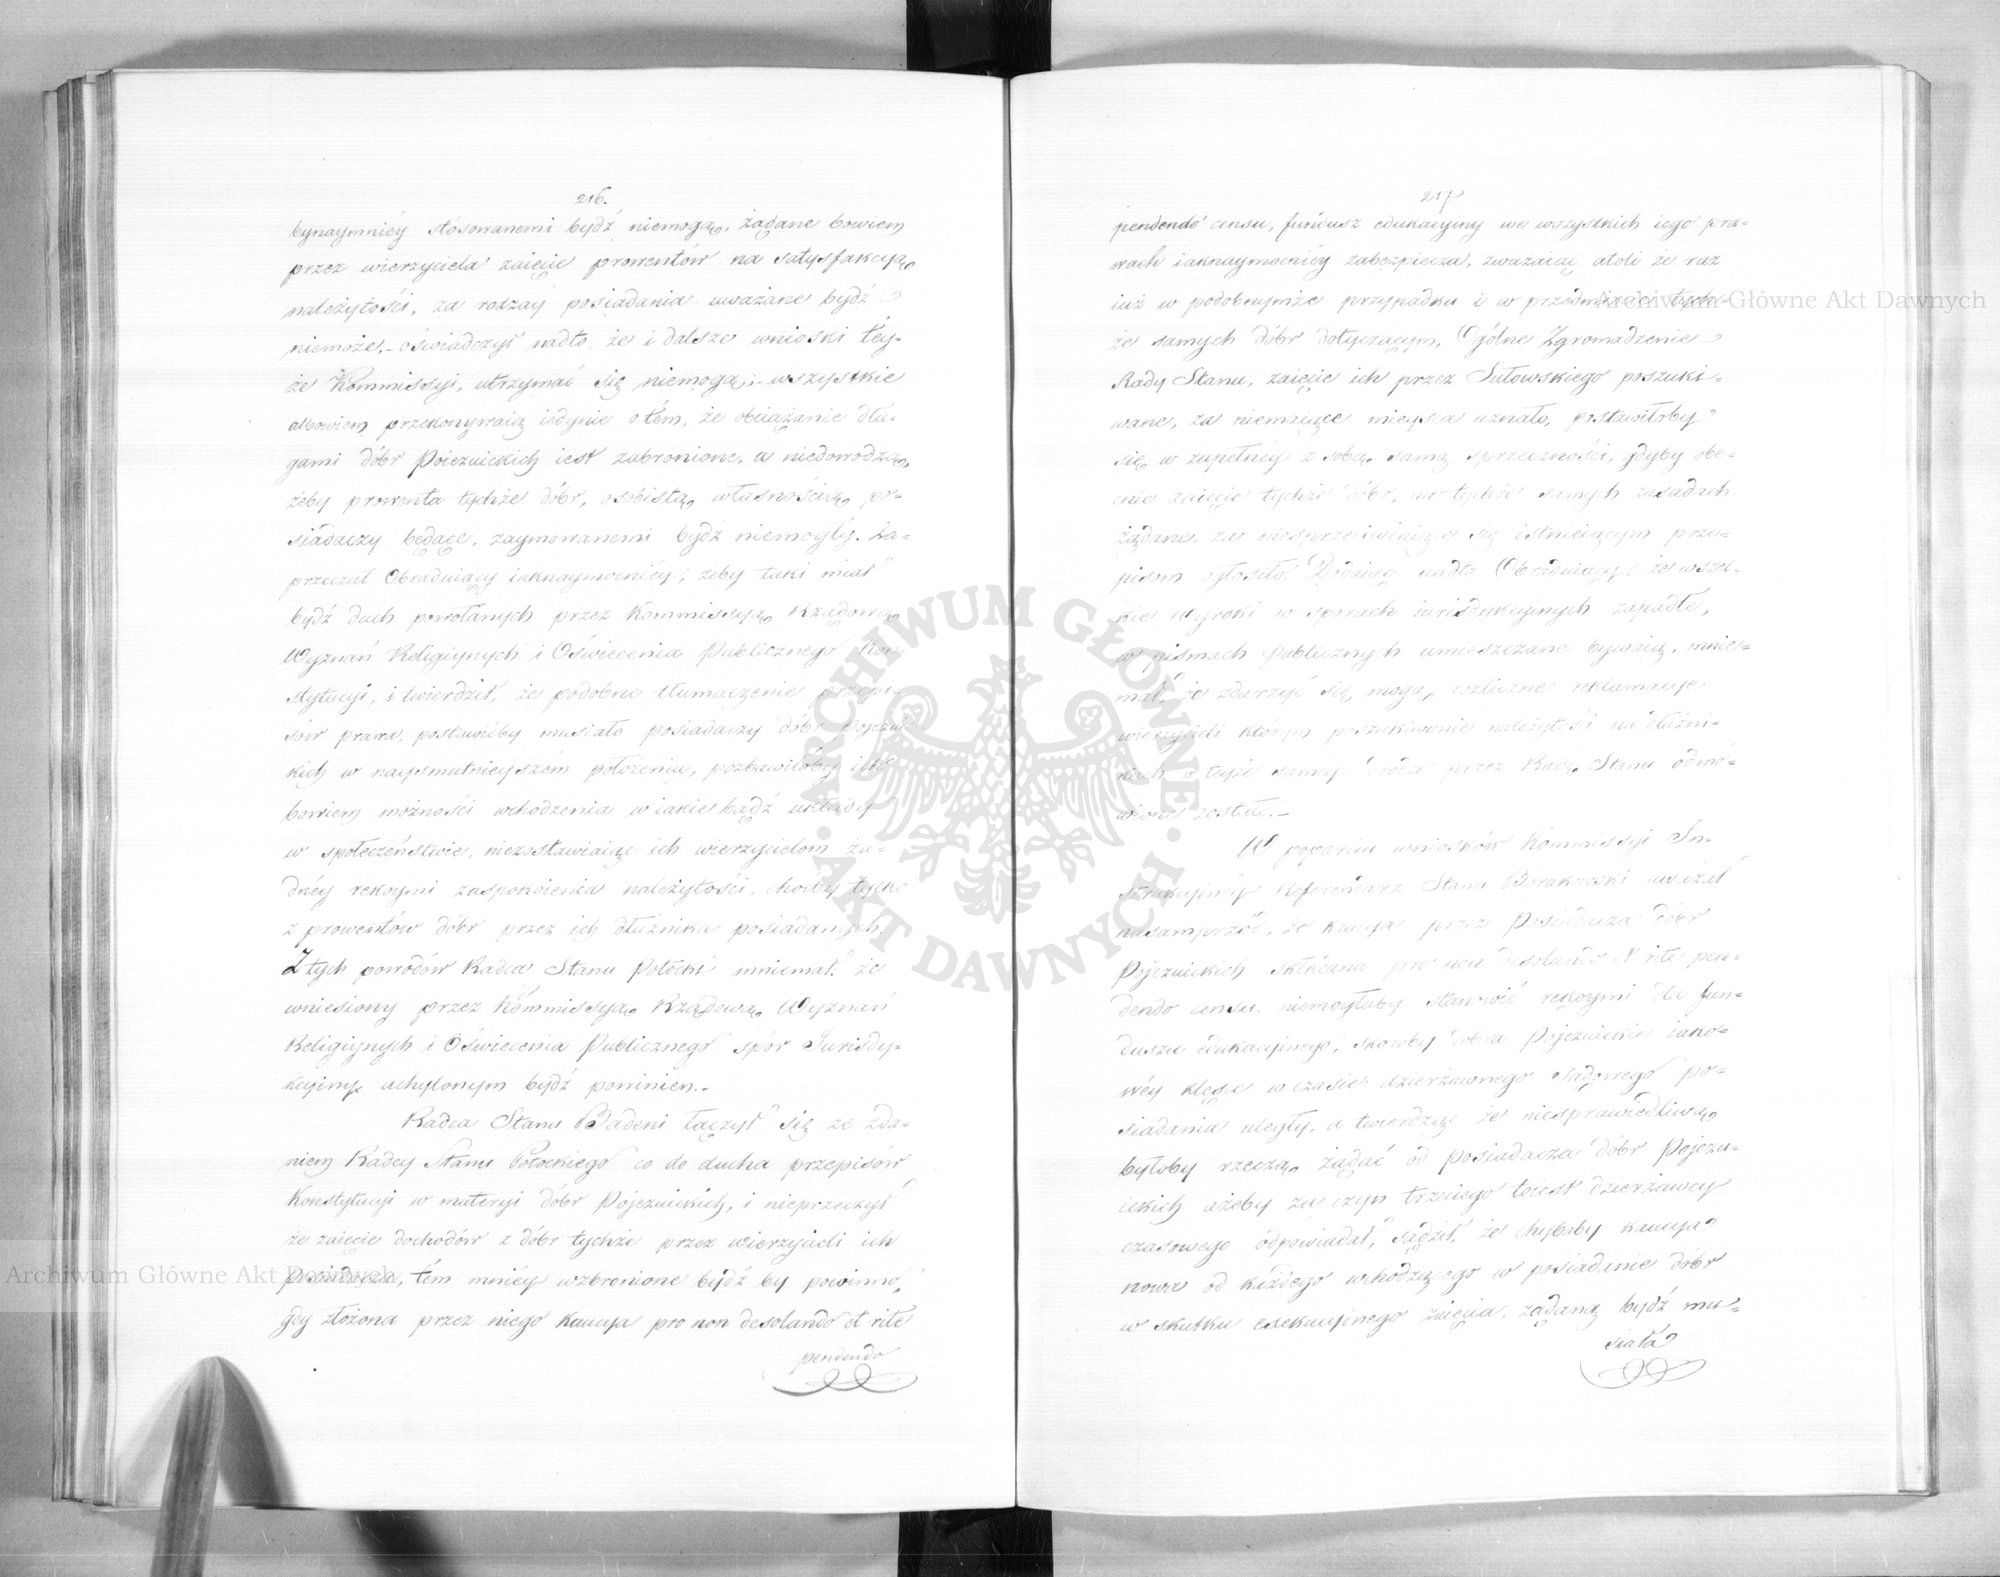 216.
bynaymniéy stósowanemi bydź niemogą, żądane bowiem
przez wierzyciela zaięcie prowentów na satysfakcyą
należytości, za rodzay posiadania uważane bydź
niemoże,- oświadczył nadto, że i dalsze wnioski téy-
że Kommissyi, utrzymać się niemogą; wszystkie
albowiem przekonywaią iedynie o tém, że obciążanie dłu-
gami dóbr Pojezuickich iest zabronione, a niedowodzą,
żeby prowenta tychże dóbr, osobistą własnością po-
siadaczy będące, zaymowanemi bydź niemogły. Za-
przeczał Obraduiący iaknaymocniéy; żeby taki miał
bydź duch powołanych przez Kommissyą Rządową
Wyznań Religiynych i Oświecenia Publicznego Kon-
stytucyi, i twierdził, że podobne tłumaczenie przepi-
sów prawa, postawićby musiało posiadaczy dóbr Pojezuic-
kich w naysmutnieyszém położeniu, pozbawiłoby ich
bowiem możności wchodzenia w iakie bądź układy
w społeczeństwie, niezostawiaiąc ich wierzycielom ża-
dnéy rękoymi zaspokoienia należytości, choćby tylko
z prowentów dóbr przez ich dłużnika posiadanych.
Z tych powodów Radca Stanu Potocki mniemał: że
wniesiony przez Kommissyą Rządową Wyznań
Religiynych i Oświecenia Publicznego spór Jurisdy-
kcyiny uchylonym bydź powinien.-
Radca Stanu Badeni łączył się ze zda-
niem Radcy Stanu Potockiego co do ducha przepisów
Konstytucyi w materyi dóbr Pojezuickich, i nieprzeczył
że zaięcie dochodów z dóbr tychże przez wierzycieli ich
posiadacza, tém mniéy wzbronione bydź by powinno,
gdy złożona przez niego kaucya pro non desolando et rite
pendendo
217
pendendo censu, fundusz edukacyiny we wszystkich iego pra-
wach iaknaymocniéy zabezpiecza, zważaiąc atoli że raz
iuż w podobnymże przypadku i w przedmiocie tych-
że samych dóbr dotyczącym, Ogólne Zgromadzenie
Rady Stanu, zaięcie ich przez Sułowskiego poszuki-
wane, za niemaiące mieysca uznało, postawiłoby
się w zupełnéy z sobą samą sprzeczności, gdyby obe-
cnie zaięcie tychże dóbr, na tychże samych zasadach
żądane, za niesprzeciwiaiące się istnieiącym prze-
pisom ogłosiło. Dodaiąc nadto Obraduiący: że wszel-
kie wyroki w sporach iurisdykcyinych zapadłe,
w pismach publicznych umieszczane bywaią, mnie-
mał, że zdarzyć się mogą rozliczne reklamacye
wierzycieli którym poszukiwanie należytości na dłużni-
kach w teyże saméy drodze przez Radę Stanu odmó-
wione zostało.-
W poparciu wniosków Kommissyi In-
strukcyinéy Referendarz Stanu Borakowski uważał
nasamprzód, że kaucya przez Posiadacza dóbr
Pojezuickich składana pro non desolando et rite pen-
dendo censu, niemogłaby stanowić rękoymi dla fun-
duszu edukacyinego, skoroby dobra Pojezuickie iako-
wéy klęsce w czasie dzierżawnego sądowego po-
siadania uległy, a twierdząc że niesprawiedliwą
byłoby rzeczą żądać od posiadacza dóbr Pojezu-
ickich ażeby za czyn trzeciego toiest dzierżawcy
czasowego odpowiadał, sądził, że chybaby kaucya
nowa od każdego wchodzącego w posiadanie dóbr
w skutku exekucyinego zaięcia, żądaną bydź mu-
siała
Archiwum Główne Akt Dawnych
Archiwum Główne Akt Dawnych
ARCHIWUM GŁÓWNE · AKT DAWNYCH ·